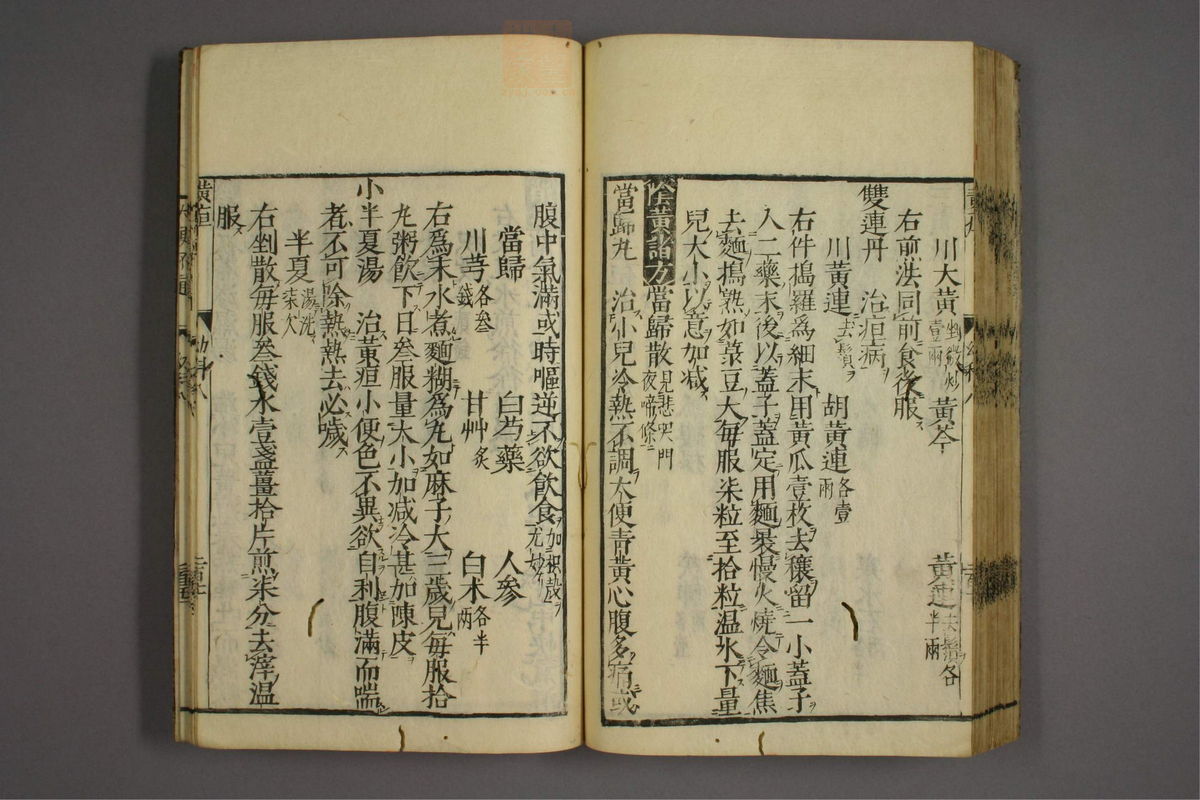 川大黃 壹兩 黃芩 黃連 去鬚各半兩
右前法同前食後服
雙連丹 治疸病
川黃連 去鬚 胡黃連 各壹兩
右件搗羅爲細末用黃瓜壹枚去穰留一小蓋子
入二藥末後以蓋子蓋定用麵裹慢火燒令麵焦
去麵搗熟如菉豆大每服柒粒至拾粒温水下量
兒大小以意加减
陰黃諸方 當歸散 見悲哭門夜啼條
當歸丸 治小兒冷熱不調大便青黃心腹多痛或
腹中氣滿或時嘔逆不欲飲食 加枳殼尤妙
當歸 白芍藥 人參
川芎 各叁錢 甘艸 炙 白术 各半兩
右爲末水煮麵糊爲丸如麻子大三歲兒每服拾
丸粥飲下日叁服量大小加减冷甚加陳皮
小半夏湯 治黃疸小便色不異欲自利腹滿而喘
者不可除熱熱去必噦
半夏 湯洗柒次
右剉散每服叁錢水壹盞薑拾片煎柒分去滓温
服
黃疸